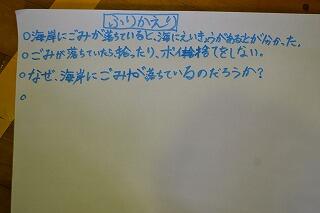 ふりかえり
○海岸にごみが落ちていると、海にえいきょうがあるとが分かった。
○ごみが落ちていたら、拾ったり、ポイ捨てをしない。
○なぜ、海岸にごみが落ちているのだろうか？
○